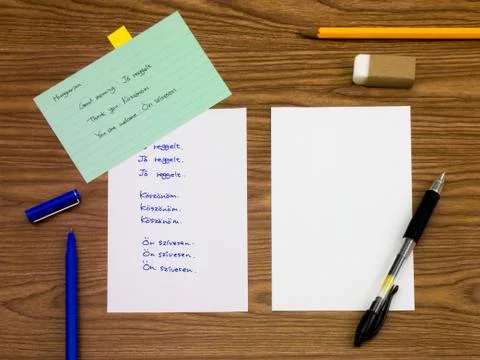 Hungarian
Good morning Jó reggelt.
Thank you Köszönöm
You are welcome Ön szívesen.
Jó reggelt.
Jó reggelt.
Jó reggelt.
Köszönöm.
Köszönöm.
Köszönöm.
Ön szívesen.
Ön szívesen.
Ön szívesen.